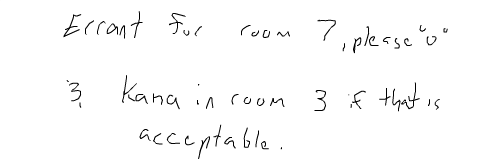 Errant for room 7, please "o"
3. Kana in room 3 if that is
acceptable.